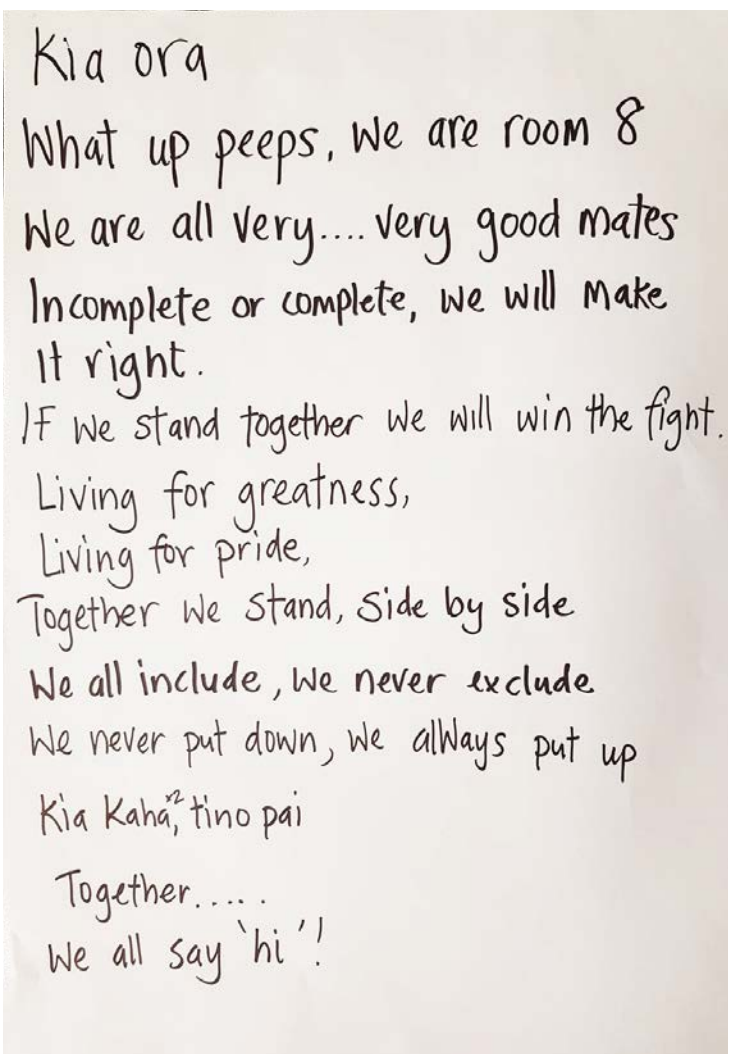 Kia ora
What up peeps, We are room 8
We are all very.... very good mates
Incomplete or complete, we will make
It right.
If we stand together we will win the fight.
Living for greatness,
Living for pride,
Together we stand, side by side
We all include, we never exclude
We never put down, we always put up
Kia Kaha,ˣ² tino pai
Together.....
We all say 'hi'!